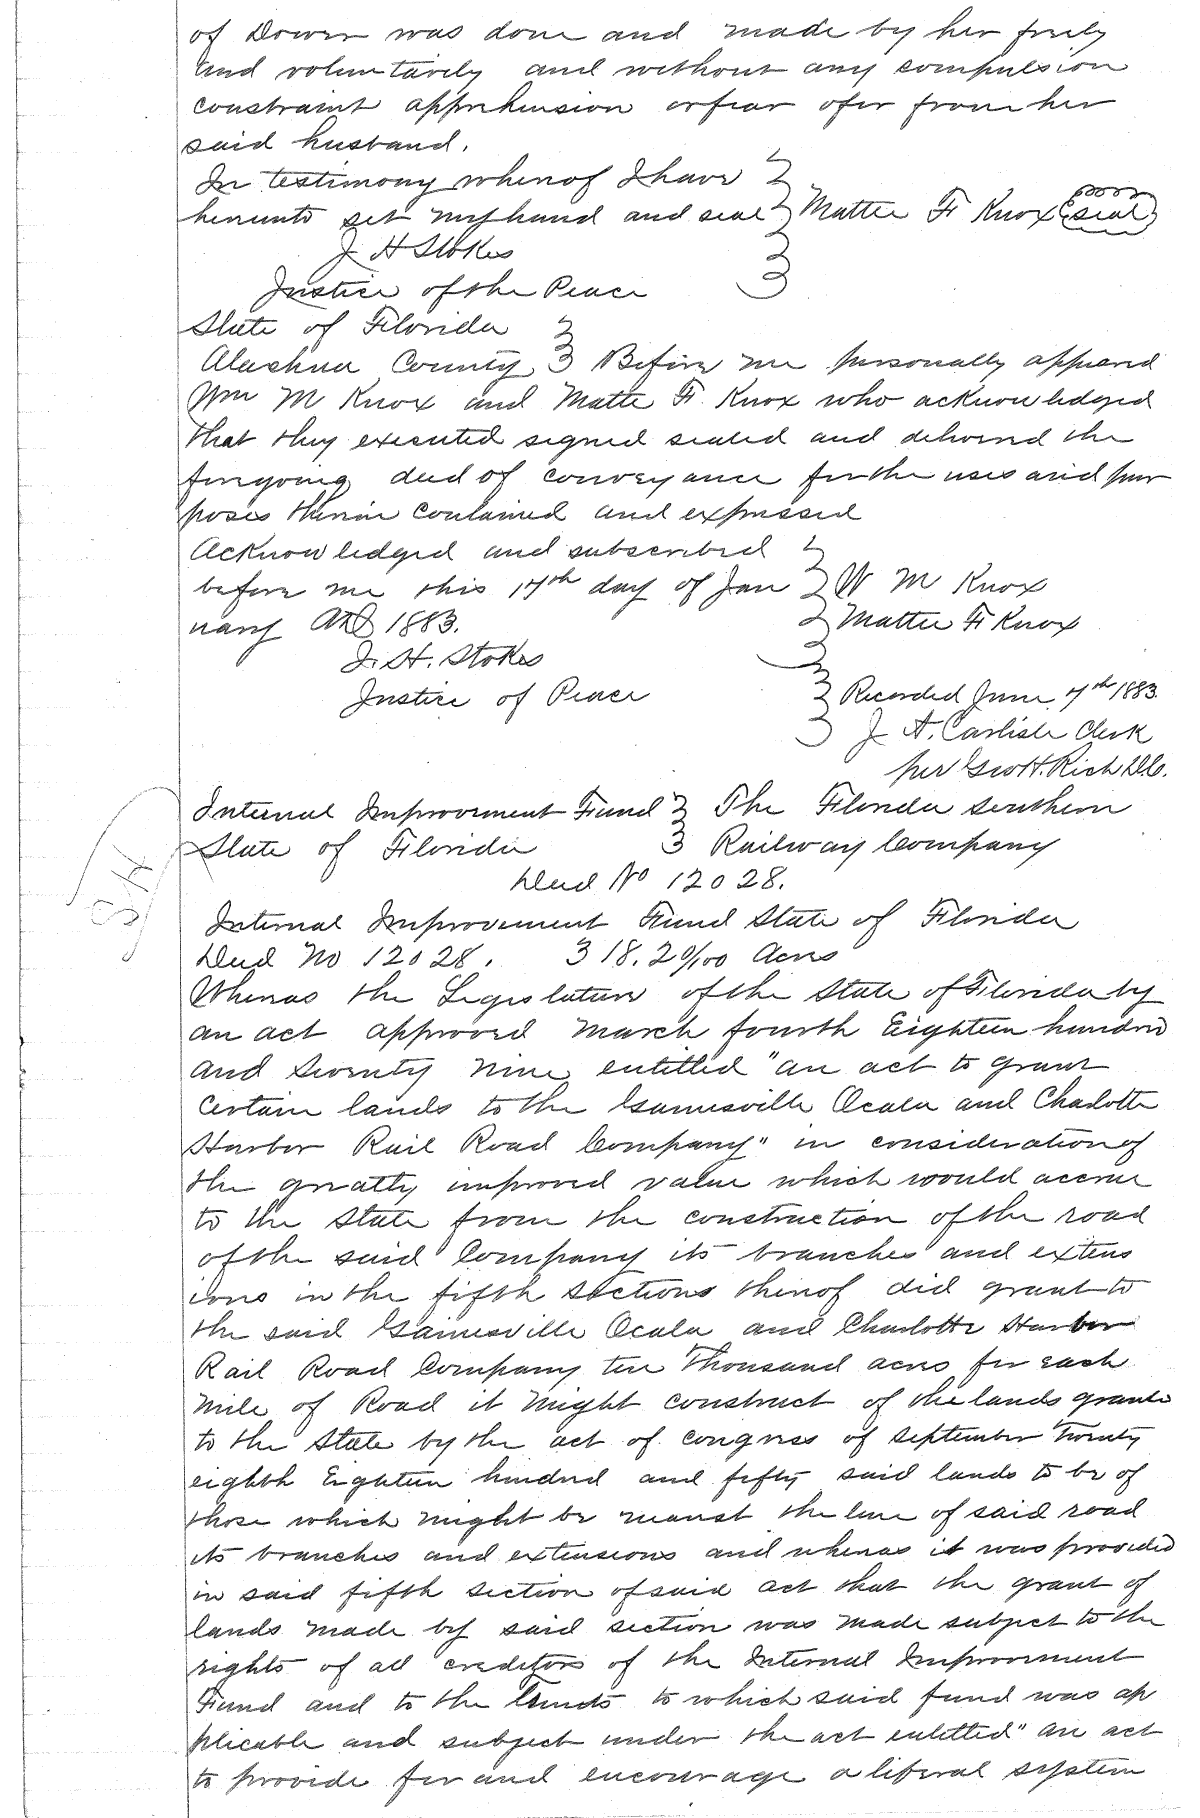 of Dower was done and made by her freely
and voluntarily and without any compulsion
constraint apprehension or fear of or from her
said husband.
In testimony whereof I have
hereunto set my hand and seal Mattie F. Knox (seal)
J H Stokes
Justice of the Peace
State of Florida
Alachua County Before me personally appeared
Wm M Knox and Mattie F. Knox who acknowledged
that they executed signed sealed and delivered the
foregoing deed of conveyance for the uses and pur
poses therein contained and expressed
Acknowledged and subscribed
before me this 17th day of Jan W M Knox
uary AD 1883. Mattie F Knox
J. H. Stokes
Justice of Peace Recorded June 7th 1883.
J. A. Carlisle Clerk
per Geo H. Rich D.C.
Internal Improvement Fund The Florida Southern
State of Florida Railway Company
Deed No 12028.
Internal Improvement Fund State of Florida
Deed No 12028. 318.20/100 Acres
Whereas the Legislature of the State of Florida by
an act approved March fourth Eighteen hundred
and Seventy nine entitled "an act to grant
certain lands to the Gainesville Ocala and Charlotte
Harbor Rail Road Company" in consideration of
the greatly improved value which would accrue
to the State from the construction of the road
of the said Company its branches and extens
ions in the fifth sections thereof did grant to
the said Gainesville Ocala and Charlotte Harbor
Rail Road Company ten Thousand acres for each
mile of Road it might construct of the lands grante
to the State by the act of congress of September Twenty
eighth Eighteen hundred and fifty said lands to be of
those which might be nearest the line of said road
its branches and extensions and whereas it was provided
in said fifth section of said act that the grant of
lands made by said section was made subject to the
rights of all creditors of the Internal Improvement
Fund and to the trusts to which said fund was ap
plicable and subject under the act entitled "an act
to provide for and encourage a liberal system